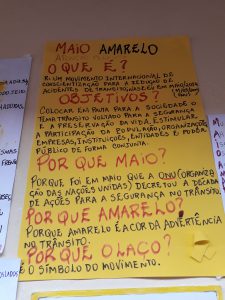 MAIO AMARELO
O QUE É?
É UM MOVIMENTO INTERNACIONAL DE
CONSCIENTIZAÇÃO PARA A REDUÇÃO DE
ACIDENTES DE TRÂNSITO, NASCEU EM MAIO/2014
OBJETIVOS?
COLOCAR EM PAUTA PARA A SOCIEDADE O
TEMA TRÂNSITO VOLTADO PARA A SEGURANÇA
E A PRESERVAÇÃO DA VIDA, ESTIMULAR
A PARTICIPAÇÃO DA POPULAÇÃO, ORGANIZAÇÕES
EMPRESAS, INSTITUIÇÕES, ENTIDADES E PODER
PÚBLICO DE FORMA CONJUNTA.
POR QUE MAIO?
PORQUE FOI EM MAIO QUE A ONU (ORGANIZA
ÇÃO DAS NAÇÕES UNIDAS) DECRETOU A DÉCADA
DE AÇÕES PARA A SEGURANÇA NO TRÂNSITO.
POR QUE AMARELO?
PORQUE AMARELO É A COR DA ADVERTÊNCIA
NO TRÂNSITO.
POR QUE O LAÇO?
É O SÍMBOLO DO MOVIMENTO.